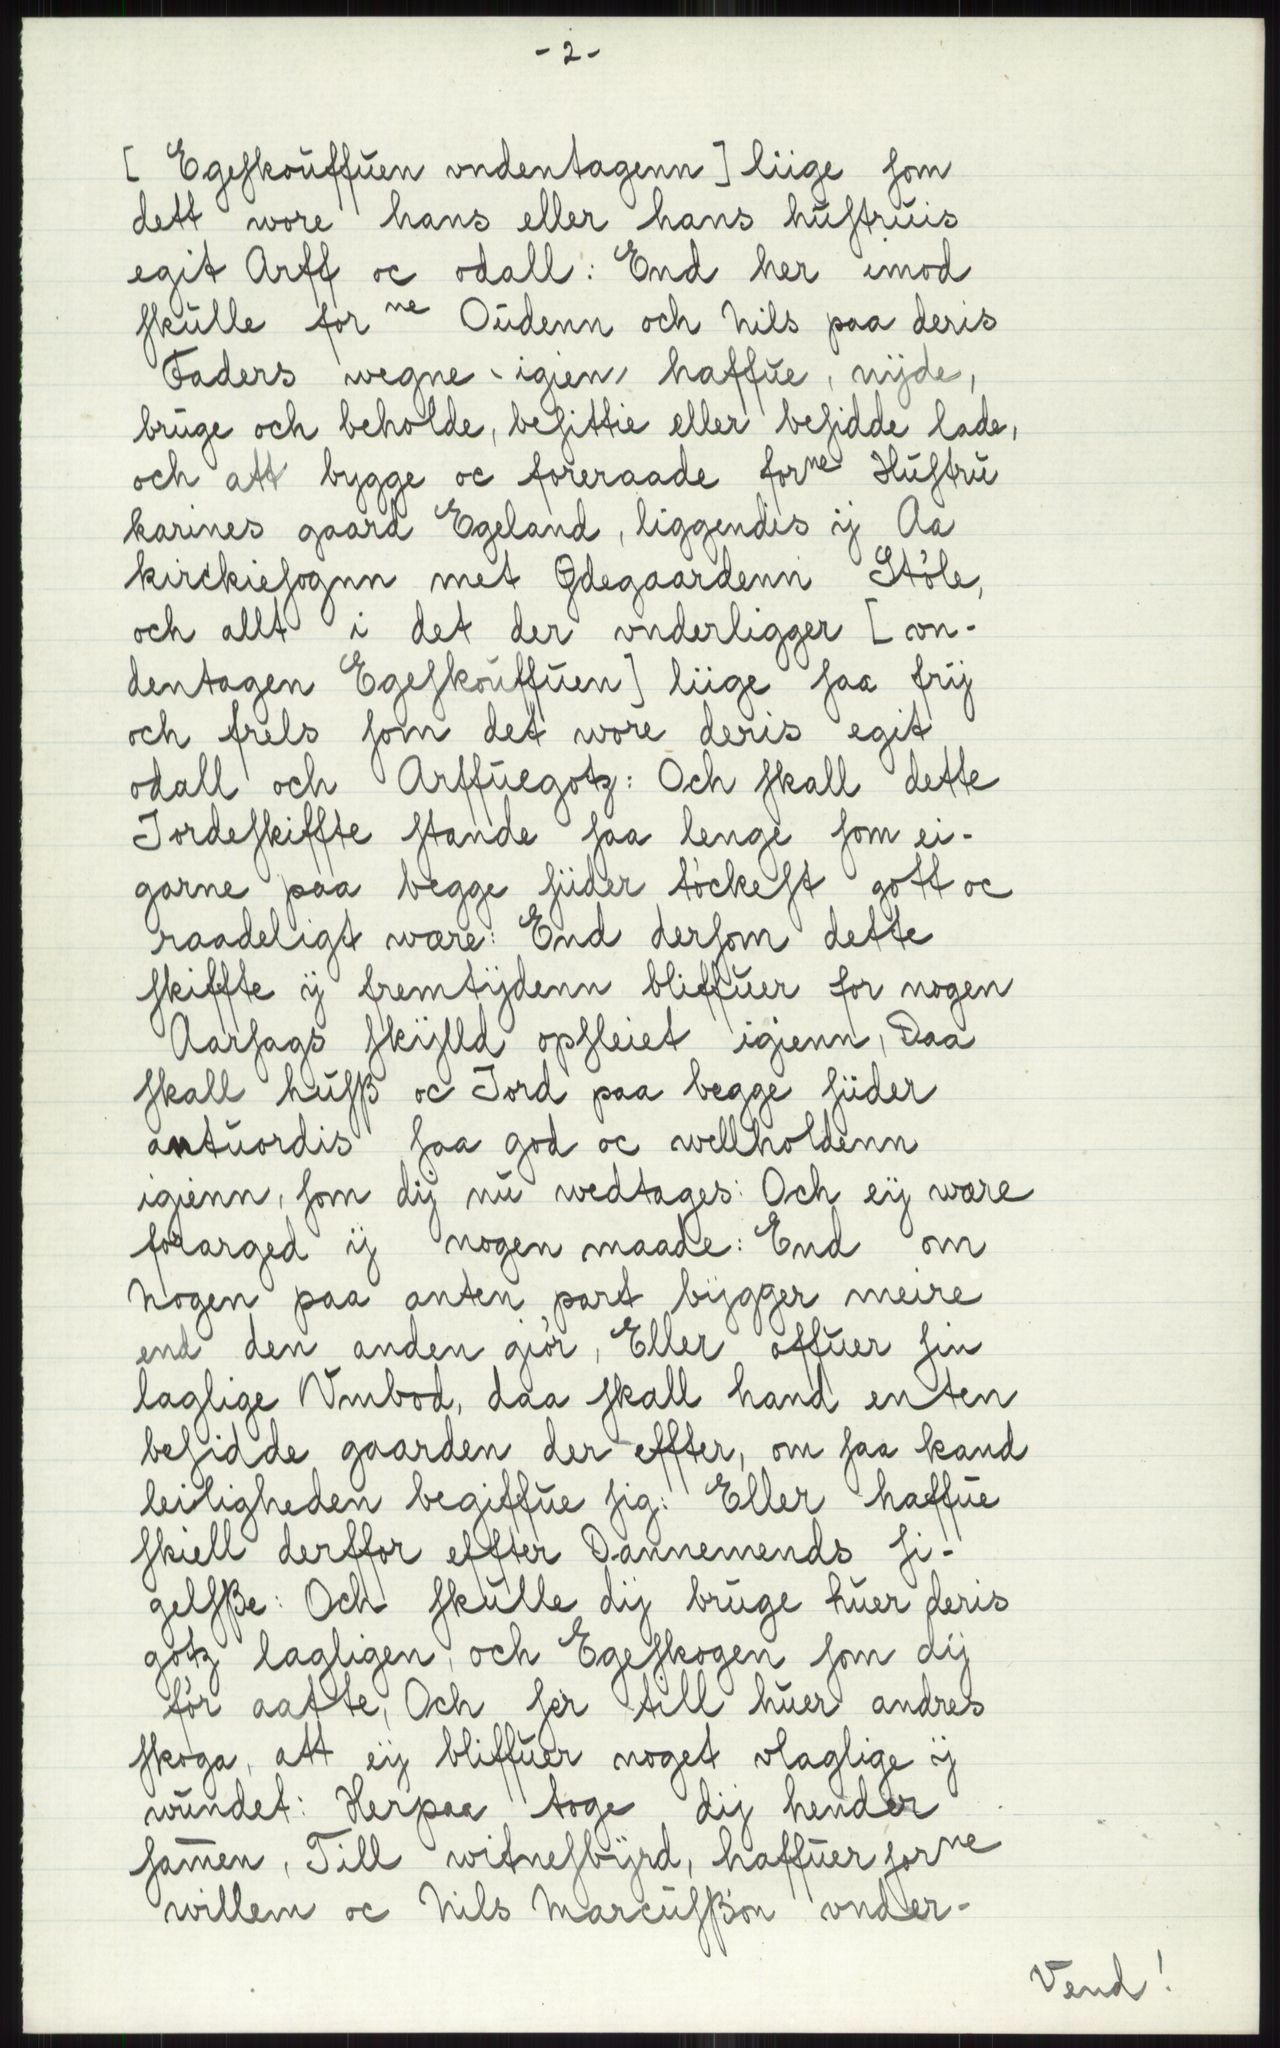 - 2 -
[ Egeskouffuen vndentagenn ] liige som
dett wore hans eller hans hustruis
egit Arff oc odall: End her imod
skulle forne Oudenn och Nils paa deris
Faders wegne igien haffue, nÿde,
bruge och beholde, besittie eller besidde lade,
och att bygge oc foreraade forne Hustru
karines gaard Egeland, liggendis ij Aa
kirckiesognn met Ødegaardenn Støle,
och allt i det der vnderligger [ vn-
dentagen Egeskouffuen ] liige saa frij
och frels som det wore deris egit
odall och Arffuegotz: Och skall dette
Jordeskiffte stande saa lenge som ei-
garne paa begge siider tøckest gott oc
raadeligt wære: End dersom dette
skiffte ij fremtijdenn bliffuer for nogen
Aarsags skÿlld opsleiet igienn, Daa
skall husß oc Jord paa begge siider
antuordis saa god oc wellholdenn
igienn, som dij nu wedtages: Och eij wære
forarged ij nogen maade: End om
Nogen paa anten part bÿgger meire
end den anden giør, Eller offuer sin
laglige Vmbod, daa skall hand enten
besidde gaarden der effter, om saa kand
leiligheden begiffue sig: Eller haffue
skiell derffor effter Dannemends si-
gelsße: Och skulle dij bruge huer deris
gotz lagligen, och Egeskogen som dij
før aatte, Och ser till huer andres
skoga, att eij bliffuer noget vlaglige ij
wundet: Herpaa toge dij hender
samen, Till witnesbÿrd, haffuer forne
willem oc Nils Marcusßøn vnder-
Vend!